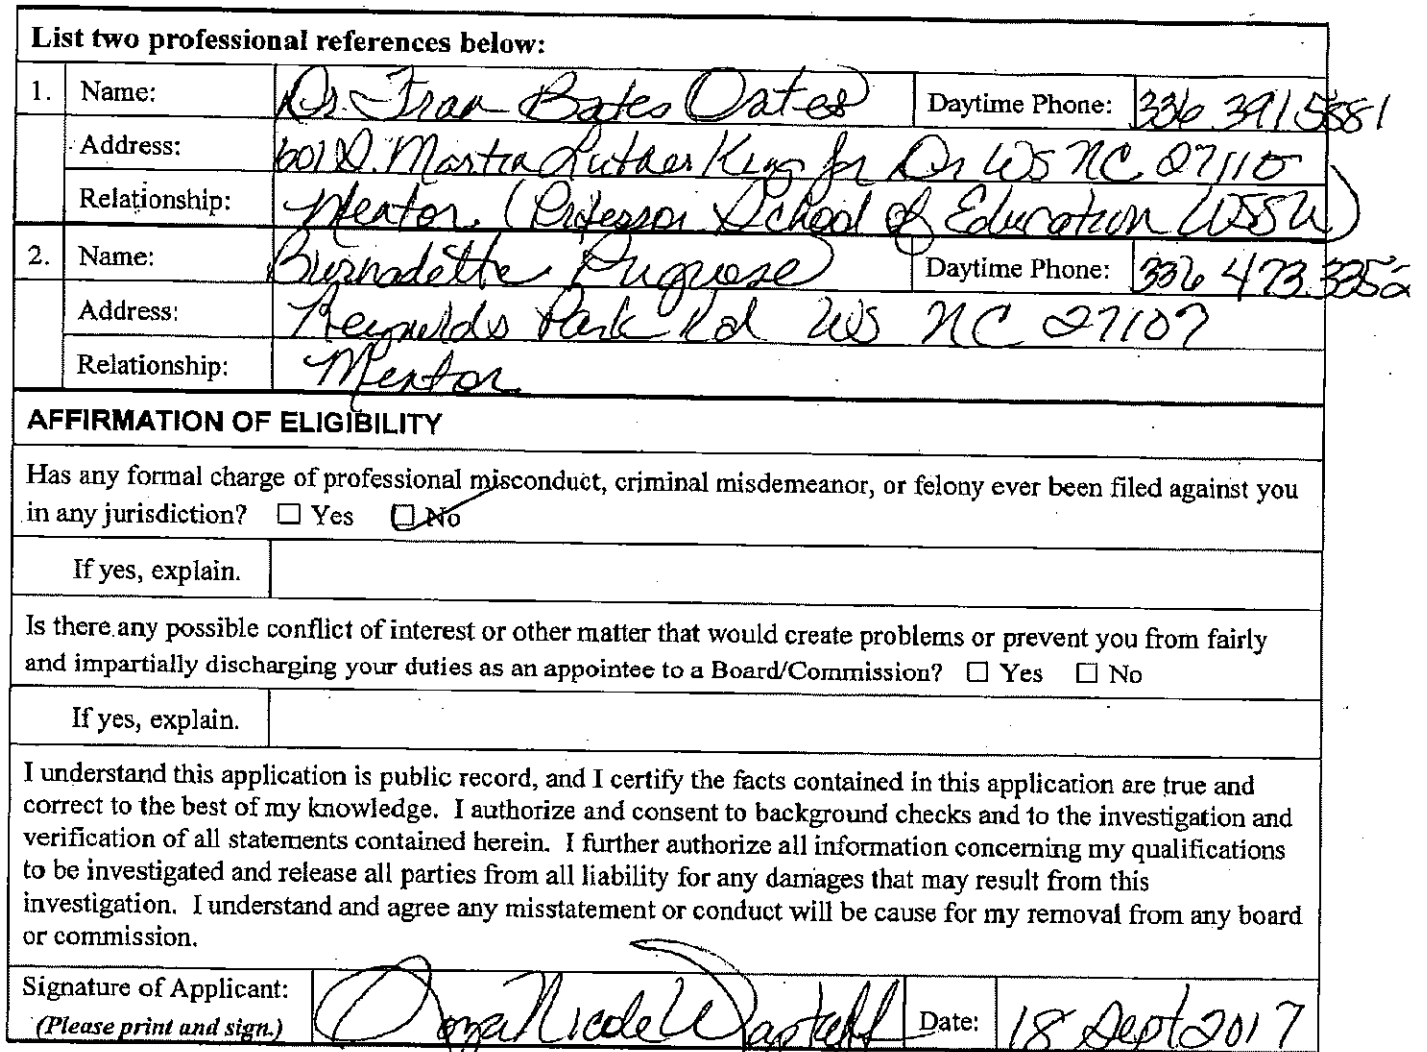 List two professional references below:
1. Name: Dr. Fran Bates Oates Daytime Phone: 336 391 5881
Address: 601 S. Martin Luther King Jr Dr WS NC 27110
Relationship: Mentor (Professor School of Education WSSU)
2. Name: Daytime Phone: 336 473.3352
Address: Reynolds Park Rd WS NC 27107
Relationship: Mentor
AFFIRMATION OF ELIGIBILITY
Has any formal charge of professional misconduct, criminal misdemeanor, or felony ever been filed against you
in any jurisdiction? ☐ Yes ☑ No
If yes, explain.
Is there any possible conflict of interest or other matter that would create problems or prevent you from fairly
and impartially discharging your duties as an appointee to a Board/Commission? ☐ Yes ☐ No
If yes, explain.
I understand this application is public record, and I certify the facts contained in this application are true and
correct to the best of my knowledge. I authorize and consent to background checks and to the investigation and
verification of all statements contained herein. I further authorize all information concerning my qualifications
to be investigated and release all parties from all liability for any damages that may result from this
investigation. I understand and agree any misstatement or conduct will be cause for my removal from any board
or commission.
Signature of Applicant: Nicole Date: 18 Sept 2017
(Please print and sign.)